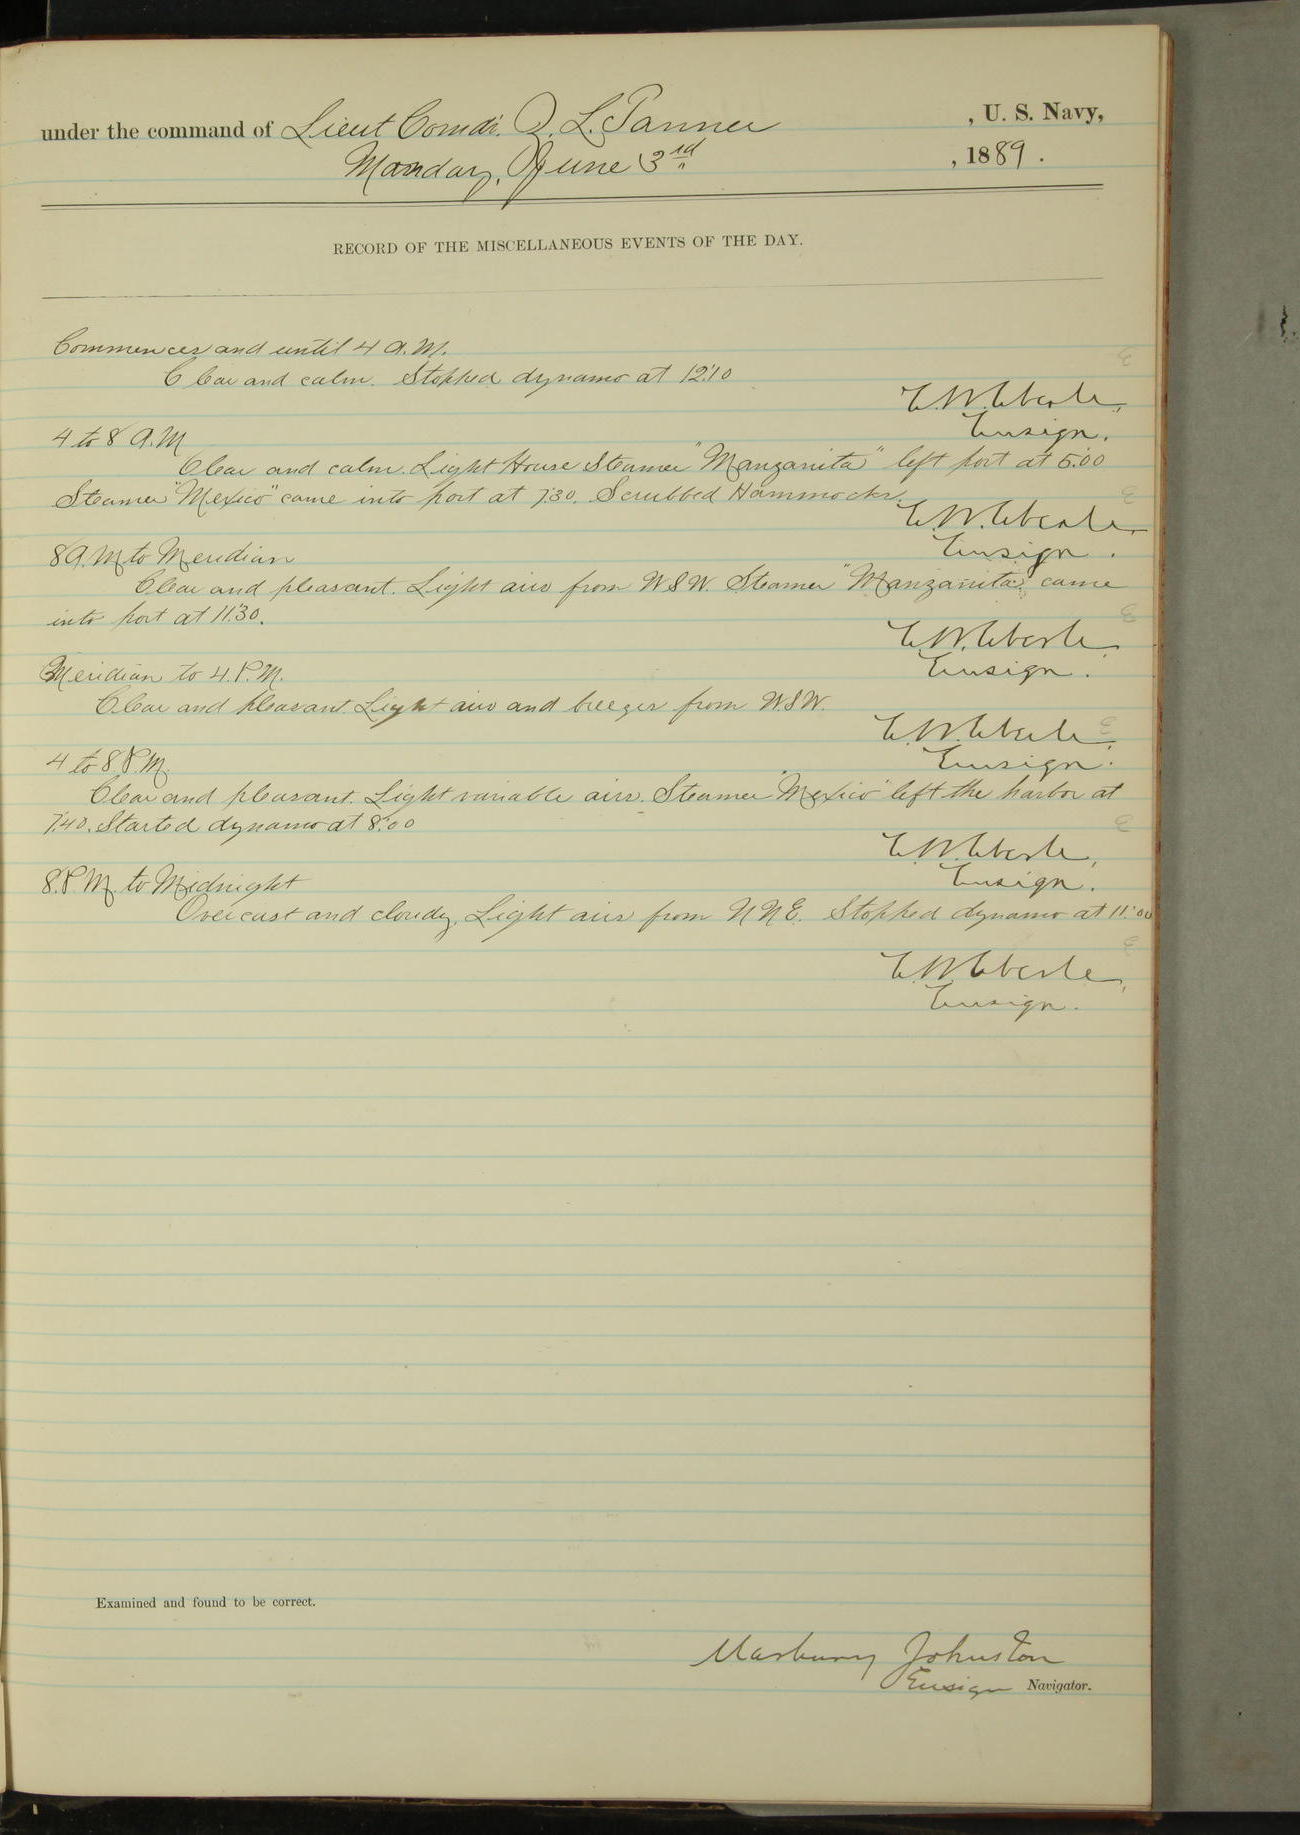 under the command of Lieut Comdr. Z. L. Tanner , U. S. Navy,
Monday, June 3rd , 1889.
RECORD OF THE MISCELLANEOUS EVENTS OF THE DAY.
Commences and until 4 A.M.
Clear and calm. Stopped dynamo at 12:10
E.W. Eberle,
Ensign.
4 to 8 A.M
Clear and calm. Light House Steamer "Manzanita" left port at 5:00
Steamer "Mexico" came into port at 7:30. Scrubbed Hammocks.
E.W. Eberle,
Ensign.
8 A.M to Meridian
Clear and pleasant. Light airs from WSW. Steamer "Manzanita" came
into port at 11:30.
E.W. Eberle,
Ensign.
Meridian to 4. P.M.
Clear and pleasant. Light airs and breezes from WSW.
E.W. Eberle,
Ensign.
4 to 8. P.M.
Clear and pleasant. Light variable airs. Steamer "Mexico" left the harbor at
7:40. Started dynamo at 8:00
E.W. Eberle,
Ensign.
8. P.M. to Midnight
Overcast and cloudy. Light airs from NNE. Stopped dynamo at 11:00
E.W. Eberle,
Ensign.
Examined and found to be correct.
Marbury Johnston
Ensign Navigator.